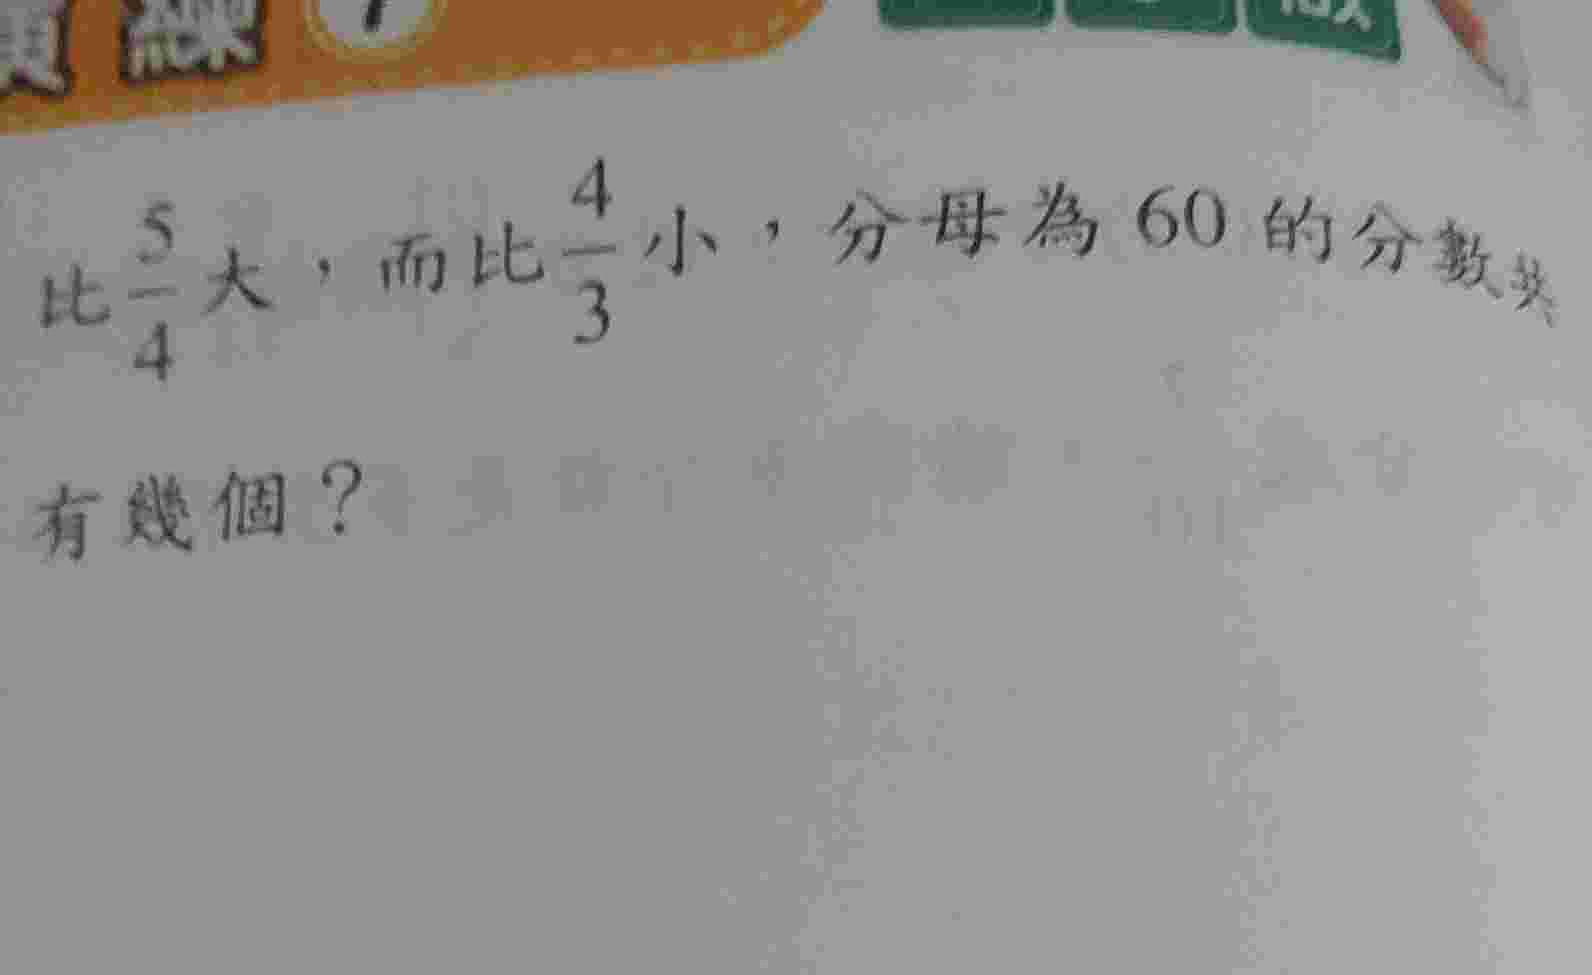 比 5/4 大，而比 4/3 小，分母為 60 的分數共
有幾個？